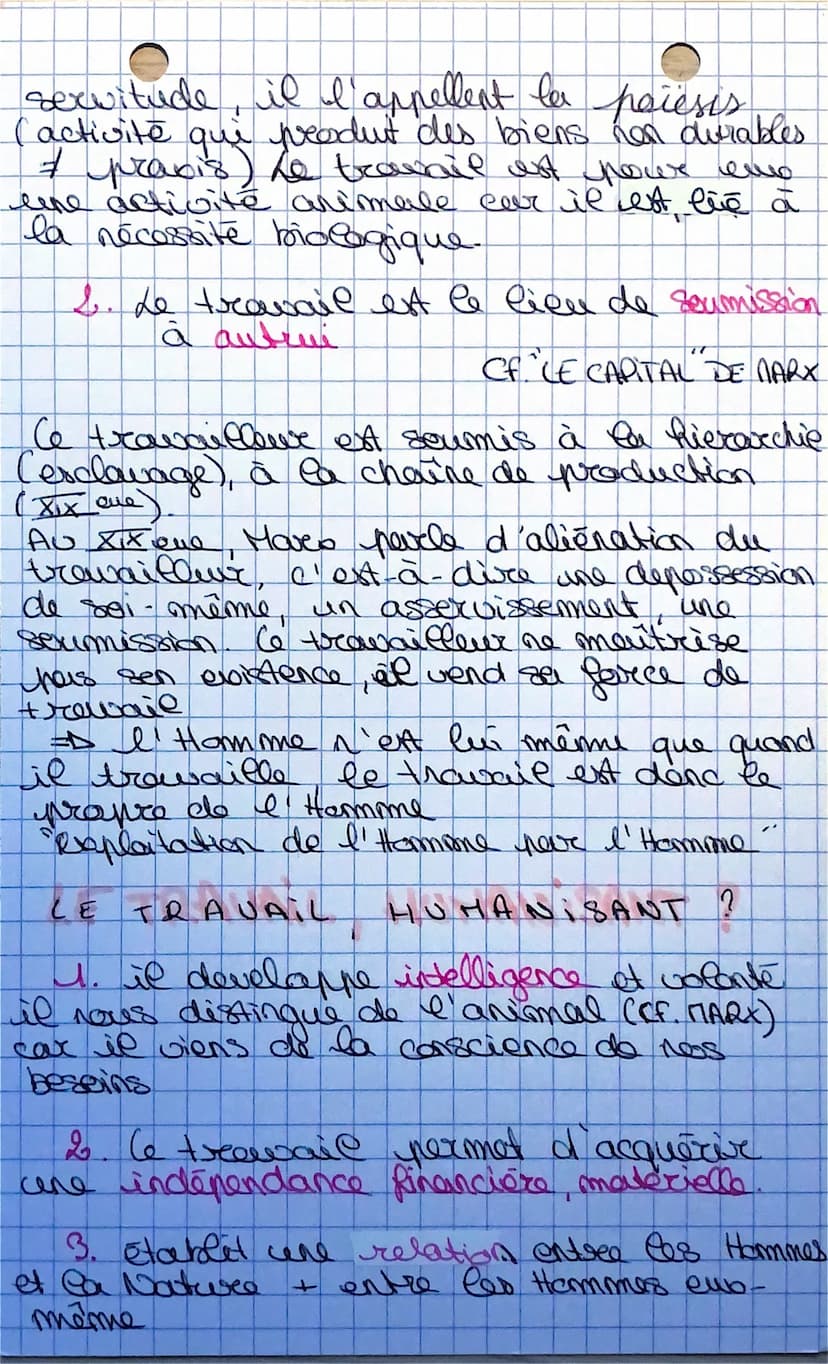 servitude, il l'appellent la poiesis
(activité qui produit des biens non durables
≠ praxis) Le travail est pour eux
une activité animale car il est lié à
la nécessité biologique.
2. Le travail est le lieu de soumission
à autrui
Cf. "LE CAPITAL" DE MARX
Le travailleur est soumis à la hierarchie
(esclavage), à la chaîne de production
(XIXeme).
AU XIXeme, Marx parle d'aliénation du
travailleur, c'est-à-dire une depossession
de soi-même, un asservissement, une
soumission. Le travailleur ne maîtrise
pas son existence, il vend sa force de
travail
=> l'Homme n'est lui même que quand
il travaille, le travail est donc le
propre de l'Homme
"Exploitation de l'Homme par l'Homme"
LE TRAVAIL, HUMANISANT ?
1. il developpe intelligence et volonté
il nous distingue de l'animal (CF. MARX)
car il viens de la conscience de nos
besoins
2. Le travail permet d'acquérir
une indépendance financière, materielle.
3. Etablit une relation entre les Hommes
et la Nature + entre les Hommes eux-
même